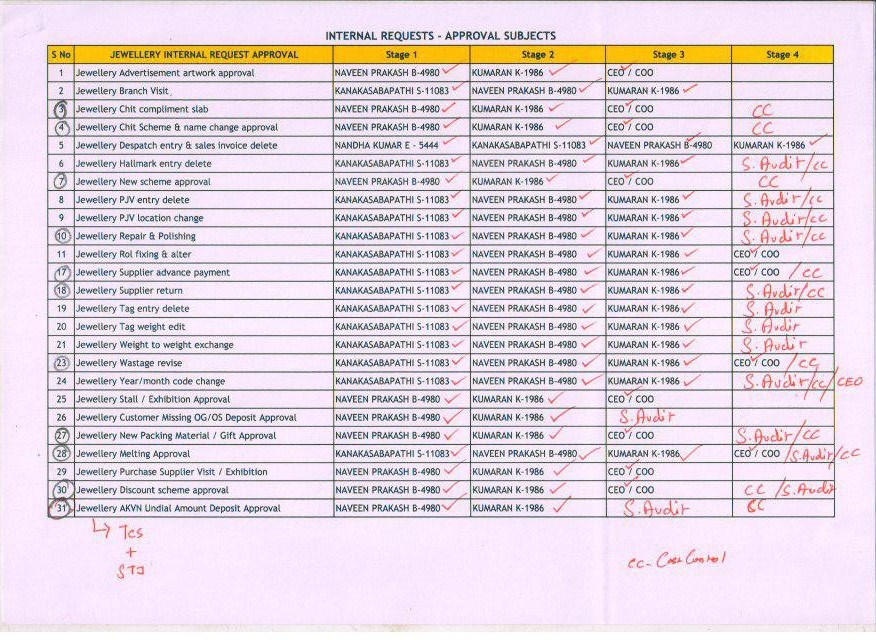 INTERNAL REQUESTS - APPROVAL SUBJECTS
S No JEWELLERY INTERNAL REQUEST APPROVAL Stage 1 Stage 2 Stage 3 Stage 4
1 Jewellery Advertisement artwork approval NAVEEN PRAKASH B-4980 KUMARAN K-1986 CEO / COO
2 Jewellery Branch Visit KANAKASABAPATHI S-11083 NAVEEN PRAKASH B-4980 KUMARAN K-1986
3 Jewellery Chit compliment slab NAVEEN PRAKASH B-4980 KUMARAN K-1986 CEO / COO CC
4 Jewellery Chit Scheme & name change approval NAVEEN PRAKASH B-4980 KUMARAN K-1986 CEO / COO CC
5 Jewellery Despatch entry & sales invoice delete NANDHA KUMAR E - 5444 KANAKASABAPATHI S-11083 NAVEEN PRAKASH B-4980 KUMARAN K-1986
6 Jewellery Hallmark entry delete KANAKASABAPATHI S-11083 NAVEEN PRAKASH B-4980 KUMARAN K-1986 S. Audit/cc
7 Jewellery New scheme approval NAVEEN PRAKASH B-4980 KUMARAN K-1986 CEO / COO CC
8 Jewellery PJV entry delete KANAKASABAPATHI S-11083 NAVEEN PRAKASH B-4980 KUMARAN K-1986 S. Audit/cc
9 Jewellery PJV location change KANAKASABAPATHI S-11083 NAVEEN PRAKASH B-4980 KUMARAN K-1986 S. Audit/cc
10 Jewellery Repair & Polishing KANAKASABAPATHI S-11083 NAVEEN PRAKASH B-4980 KUMARAN K-1986 S. Audit/cc
11 Jewellery Rol fixing & alter KANAKASABAPATHI S-11083 NAVEEN PRAKASH B-4980 KUMARAN K-1986 CEO / COO
17 Jewellery Supplier advance payment KANAKASABAPATHI S-11083 NAVEEN PRAKASH B-4980 KUMARAN K-1986 CEO / COO / CC
18 Jewellery Supplier return KANAKASABAPATHI S-11083 NAVEEN PRAKASH B-4980 KUMARAN K-1986 S. Audit/cc
19 Jewellery Tag entry delete KANAKASABAPATHI S-11083 NAVEEN PRAKASH B-4980 KUMARAN K-1986 S. Audit
20 Jewellery Tag weight edit KANAKASABAPATHI S-11083 NAVEEN PRAKASH B-4980 KUMARAN K-1986 S. Audit
21 Jewellery Weight to weight exchange KANAKASABAPATHI S-11083 NAVEEN PRAKASH B-4980 KUMARAN K-1986 S. Audit
23 Jewellery Wastage revise KANAKASABAPATHI S-11083 NAVEEN PRAKASH B-4980 KUMARAN K-1986 CEO / COO / CC
24 Jewellery Year/month code change KANAKASABAPATHI S-11083 NAVEEN PRAKASH B-4980 KUMARAN K-1986 S. Audit/cc/CEO
25 Jewellery Stall / Exhibition Approval NAVEEN PRAKASH B-4980 KUMARAN K-1986 CEO / COO
26 Jewellery Customer Missing OG/OS Deposit Approval NAVEEN PRAKASH B-4980 KUMARAN K-1986 S. Audit
27 Jewellery New Packing Material / Gift Approval NAVEEN PRAKASH B-4980 KUMARAN K-1986 CEO / COO S. Audit/cc
28 Jewellery Melting Approval KANAKASABAPATHI S-11083 NAVEEN PRAKASH B-4980 KUMARAN K-1986 CEO / COO /S. Audit/CC
29 Jewellery Purchase Supplier Visit / Exhibition NAVEEN PRAKASH B-4980 KUMARAN K-1986 CEO / COO
30 Jewellery Discount scheme approval NAVEEN PRAKASH B-4980 KUMARAN K-1986 CEO / COO CC /S. Audit
31 Jewellery AKVN Undial Amount Deposit Approval NAVEEN PRAKASH B-4980 KUMARAN K-1986 S. Audit CC
Tcs
+
STJ
CC - Cost Control